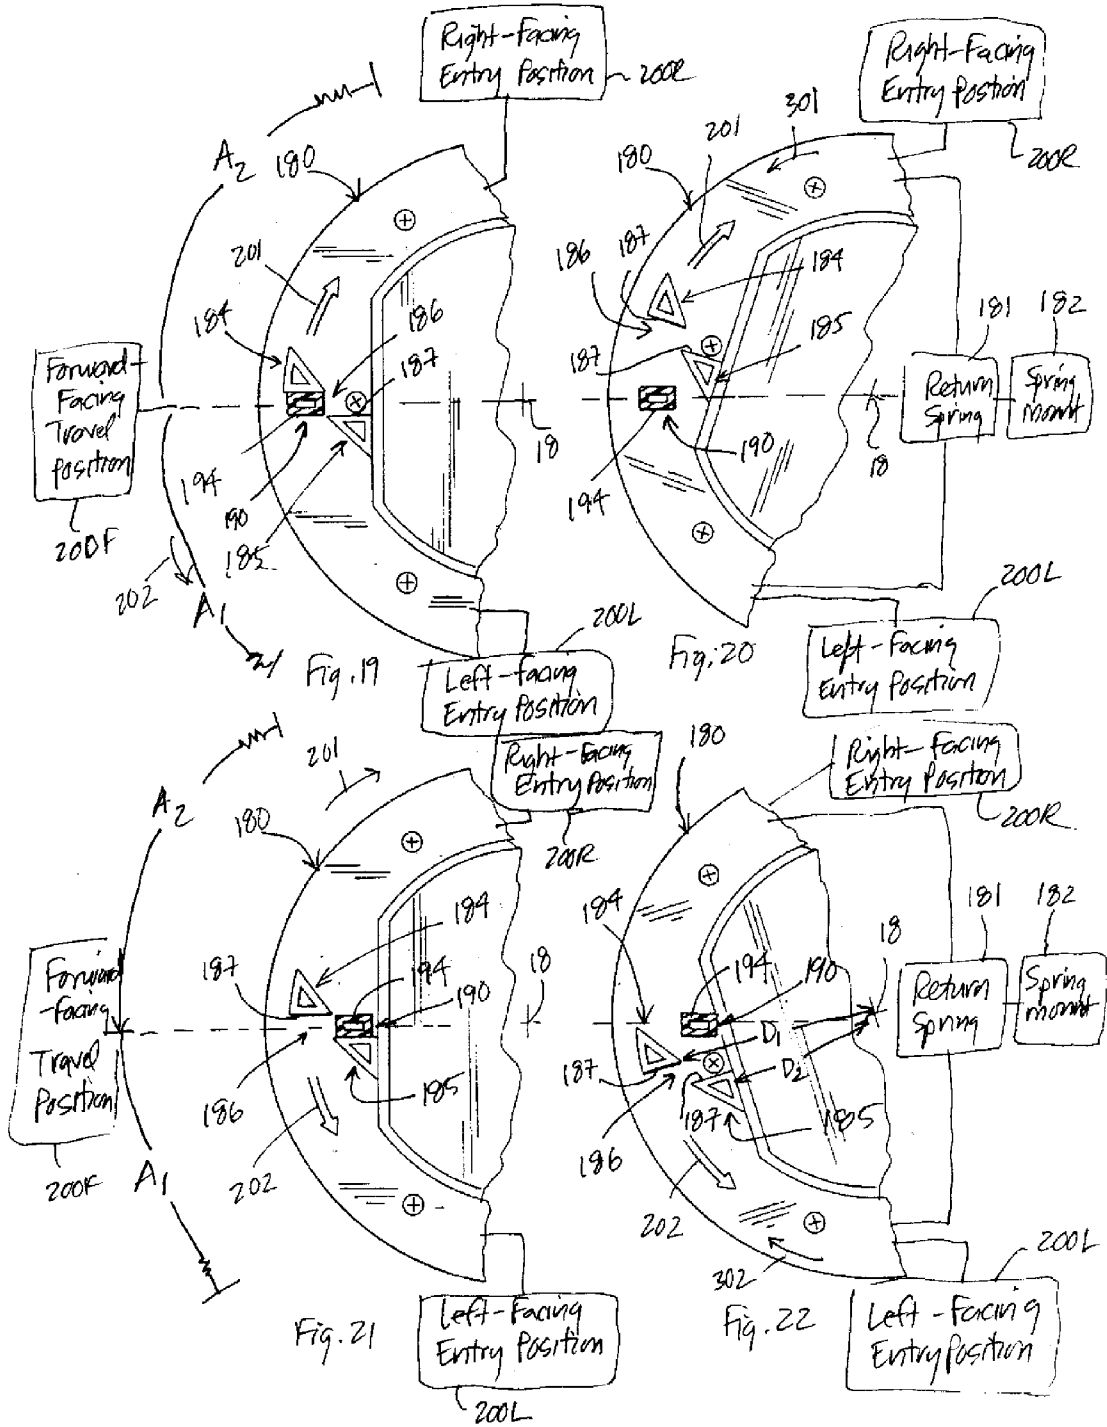 Right-Facing
Entry Position
200R
A2
180
201
184
186
187
Forward-
Facing
Travel
Position
200F
18
194
190
185
202
A1
Fig. 19
200L
Left-facing
Entry Position
Right-Facing
Entry Position
200R
301
201
180
187
186
184
185
187
181
182
Return
Spring
Spring
Mount
18
190
194
200L
Fig. 20
Left-Facing
Entry Position
201
A2
180
Right-Facing
Entry Position
200R
184
187
194
190
18
Forward
-facing
Travel
Position
200F
186
185
202
A1
Fig. 21
Left-Facing
Entry Position
200L
180
Right-Facing
Entry Position
200R
184
194
190
18
181
182
Return
Spring
Spring
mount
D1
D2
187
187
185
186
202
302
200L
Fig. 22
Left-Facing
Entry Position